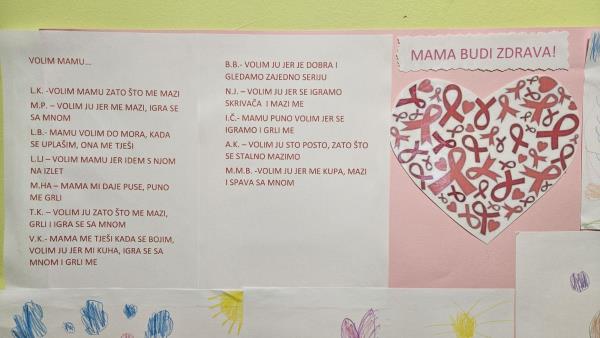 VOLIM MAMU...
L.K. -VOLIM MAMU ZATO ŠTO ME MAZI
M.P. – VOLIM JU JER ME MAZI, IGRA SE
SA MNOM
L.B.- MAMU VOLIM DO MORA, KADA
SE UPLAŠIM, ONA ME TJEŠI
L.LJ – VOLIM MAMU JER IDEM S NJOM
NA IZLET
M.HA – MAMA MI DAJE PUSE, PUNO
ME GRLI
T.K. – VOLIM JU ZATO ŠTO ME MAZI,
GRLI I IGRA SE SA MNOM
V.K.- MAMA ME TJEŠI KADA SE BOJIM,
VOLIM JU JER MI KUHA, IGRA SE SA
MNOM I GRLI ME
B.B.- VOLIM JU JER JE DOBRA I
GLEDAMO ZAJEDNO SERIJU
N.J. – VOLIM JU JER SE IGRAMO
SKRIVAČA I MAZI ME
I.Č.- MAMU PUNO VOLIM JER SE
IGRAMO I GRLI ME
A.K. – VOLIM JU STO POSTO, ZATO ŠTO
SE STALNO MAZIMO
M.M.B. -VOLIM JU JER ME KUPA, MAZI
I SPAVA SA MNOM
MAMA BUDI ZDRAVA!